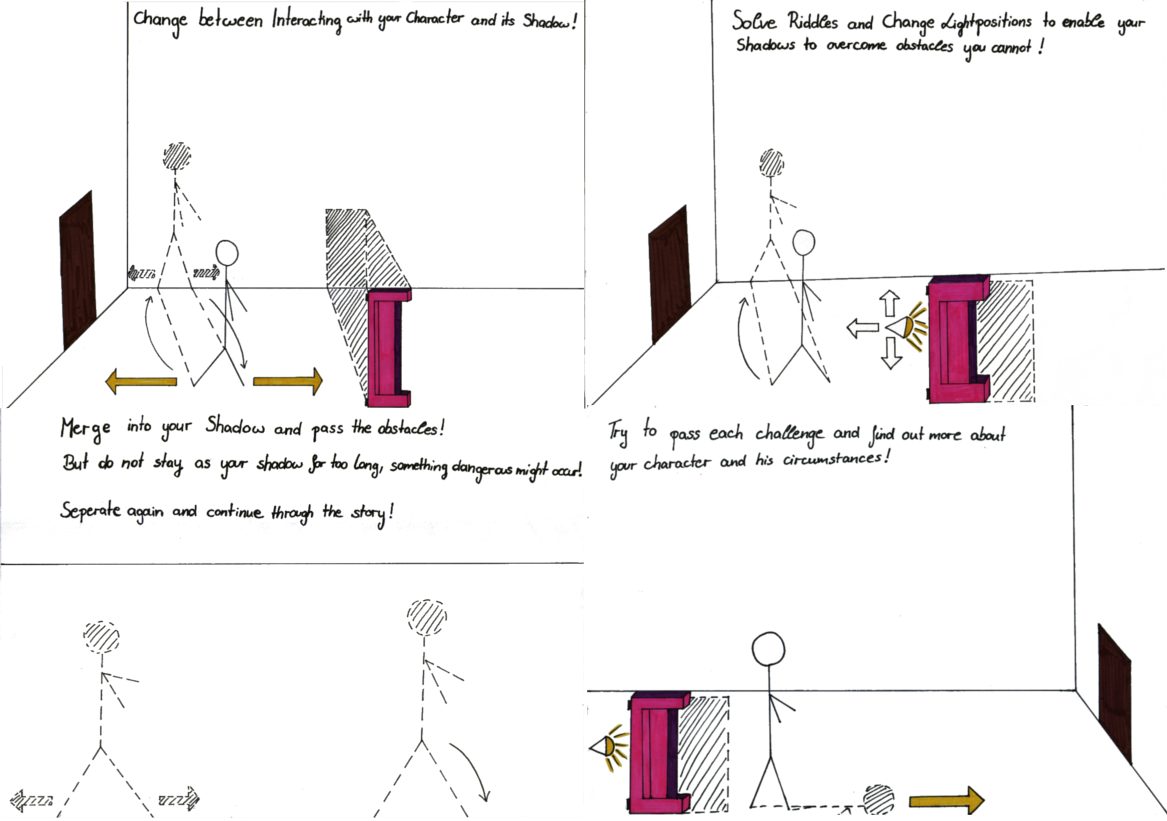 Change between Interacting with your Character and its Shadow!
Solve Riddles and Change Lightpositions to enable your
Shadows to overcome obstacles you cannot!
Merge into your Shadow and pass the obstacles!
But do not stay as your shadow for too long, something dangerous might occur!
Seperate again and continue through the story!
Try to pass each challenge and find out more about
your character and his circumstances!